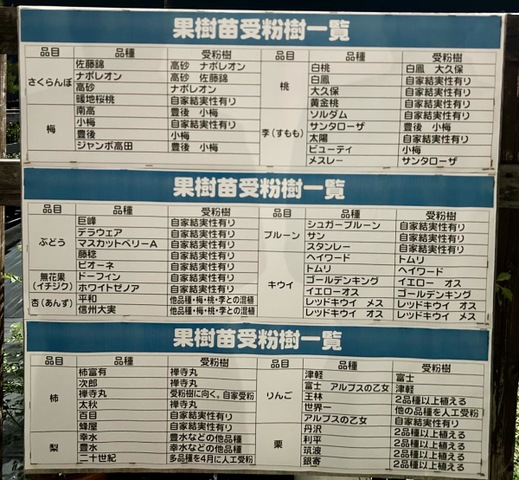 果樹苗受粉樹一覧
品目 品種 受粉樹 品目 品種 受粉樹
さくらんぼ
佐藤錦 高砂 ナポレオン
ナポレオン 高砂 佐藤錦
高砂 ナポレオン
暖地桜桃 自家結実性有り
梅
南高 豊後 小梅
小梅 自家結実性有り
豊後 小梅
ジャンボ高田 豊後 小梅
桃
白桃 白鳳 大久保
白鳳 自家結実性有り
大久保 自家結実性有り
黄金桃 自家結実性有り
李(すもも)
ソルダム
サンタローザ 自家結実性有り
太陽 自家結実性有り
ビューティ 小梅
メスレー サンタローザ
果樹苗受粉樹一覧
品目 品種 受粉樹 品目 品種 受粉樹
ぶどう
巨峰 自家結実性有り
デラウェア 自家結実性有り
マスカットベリーA 自家結実性有り
藤稔 自家結実性有り
ピオーネ 自家結実性有り
無花果(イチジク)
ドーフィン 自家結実性有り
ホワイトゼノア 自家結実性有り
杏(あんず)
平和 他品種・梅・桃・李との混植
信州大実 他品種・梅・桃・李との混植
プルーン
シュガープルーン 自家結実性有り
サン 自家結実性有り
スタンレー 自家結実性有り
キウイ
ヘイワード トムリ
トムリ ヘイワード
ゴールデンキング イエロー オス
イエロー オス ゴールデンキング
レッドキウイ メス レッドキウイ オス
レッドキウイ オス レッドキウイ メス
果樹苗受粉樹一覧
品目 品種 受粉樹 品目 品種 受粉樹
柿
柿富有 禅寺丸
次郎 禅寺丸
禅寺丸 受粉樹に向く。自家受粉
太秋 禅寺丸
百目 自家結実性有り
蜂屋 自家結実性有り
梨
幸水 豊水などの他品種
豊水 幸水などの他品種
二十世紀 多品種を4月に人工受粉
りんご
津軽 富士
富士 アルプスの乙女 津軽
王林 2品種以上植える
世界一 他の品種を人工受粉
アルプスの乙女 自家結実性有り
栗
丹沢 2品種以上植える
利平 2品種以上植える
筑波 2品種以上植える
銀寄 2品種以上植える